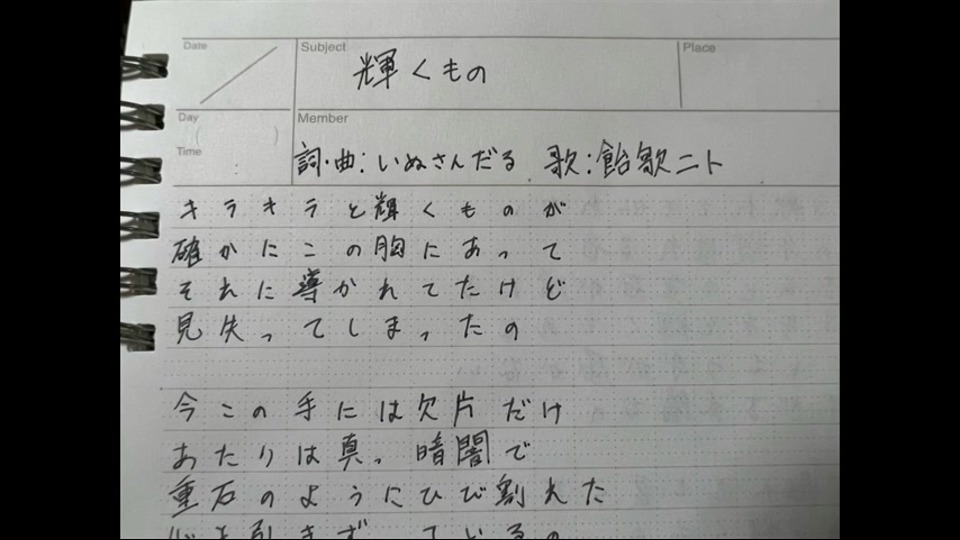 Date
Subject
Place
輝くもの
Day
( )
Member
Time
:
詞・曲:いぬさんだる 歌:飴歌ニト
キラキラと輝くものが
確かにこの胸にあって
それに導かれてたけど
見失ってしまったの
今この手には欠片だけ
あたりは真っ暗闇で
重石のようにひび割れた
心を引きずっているの